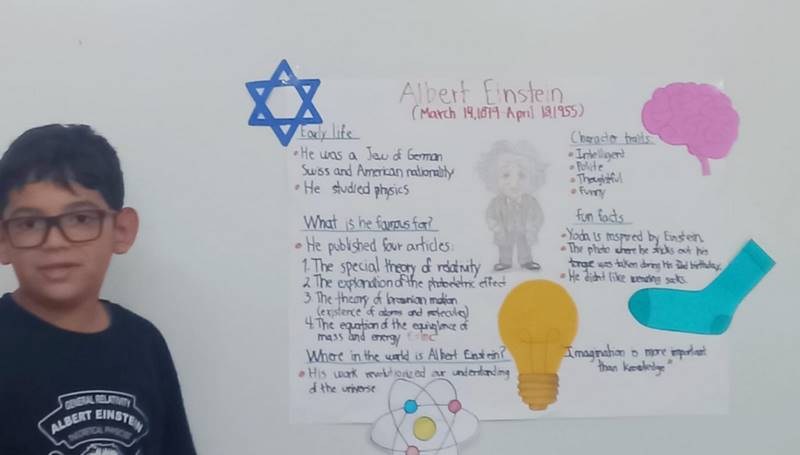 Albert Einstein
(March 14, 1879 - April 18, 1955)
Early life
• He was a Jew of German
Swiss and American nationality
• He studied physics
What is he famous for?
• He published four articles:
1. The special theory of relativity
2. The explanation of the photoeletric effect
3. The theory of brownian motion
(existence of atoms and molecules)
4. The equation of the equivalence of
mass and energy E=mc²
Where in the world is Albert Einstein?
• His work revolutionized our understanding
of the universe
Character traits:
• Intelligent
• Polite
• Thoughtful
• Funny
Fun facts
• Yoda is inspired by Einstein.
• The photo where he sticks out his
tongue was taken during his 72nd birthday.
• He didn't like wearing socks.
"Imagination is more important
than knowledge"
GENERAL RELATIVITY
ALBERT EINSTEIN
THEORETICAL PHYSICIST